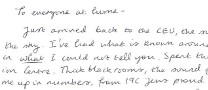 To everyone at home -
Just arrived back to the CEU, the
the sky. I've lied what is known around
in what I could not tell you. Spent the
ion Centre. That black room, the sound of
me up in numbers, from 19C Jens proud